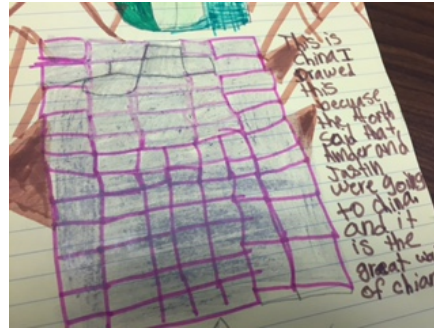 This is
china I
drawed
this
becyase
the North
said that,
Amber and
Justin
were going
to china.
and it
is the
great wa
of chian